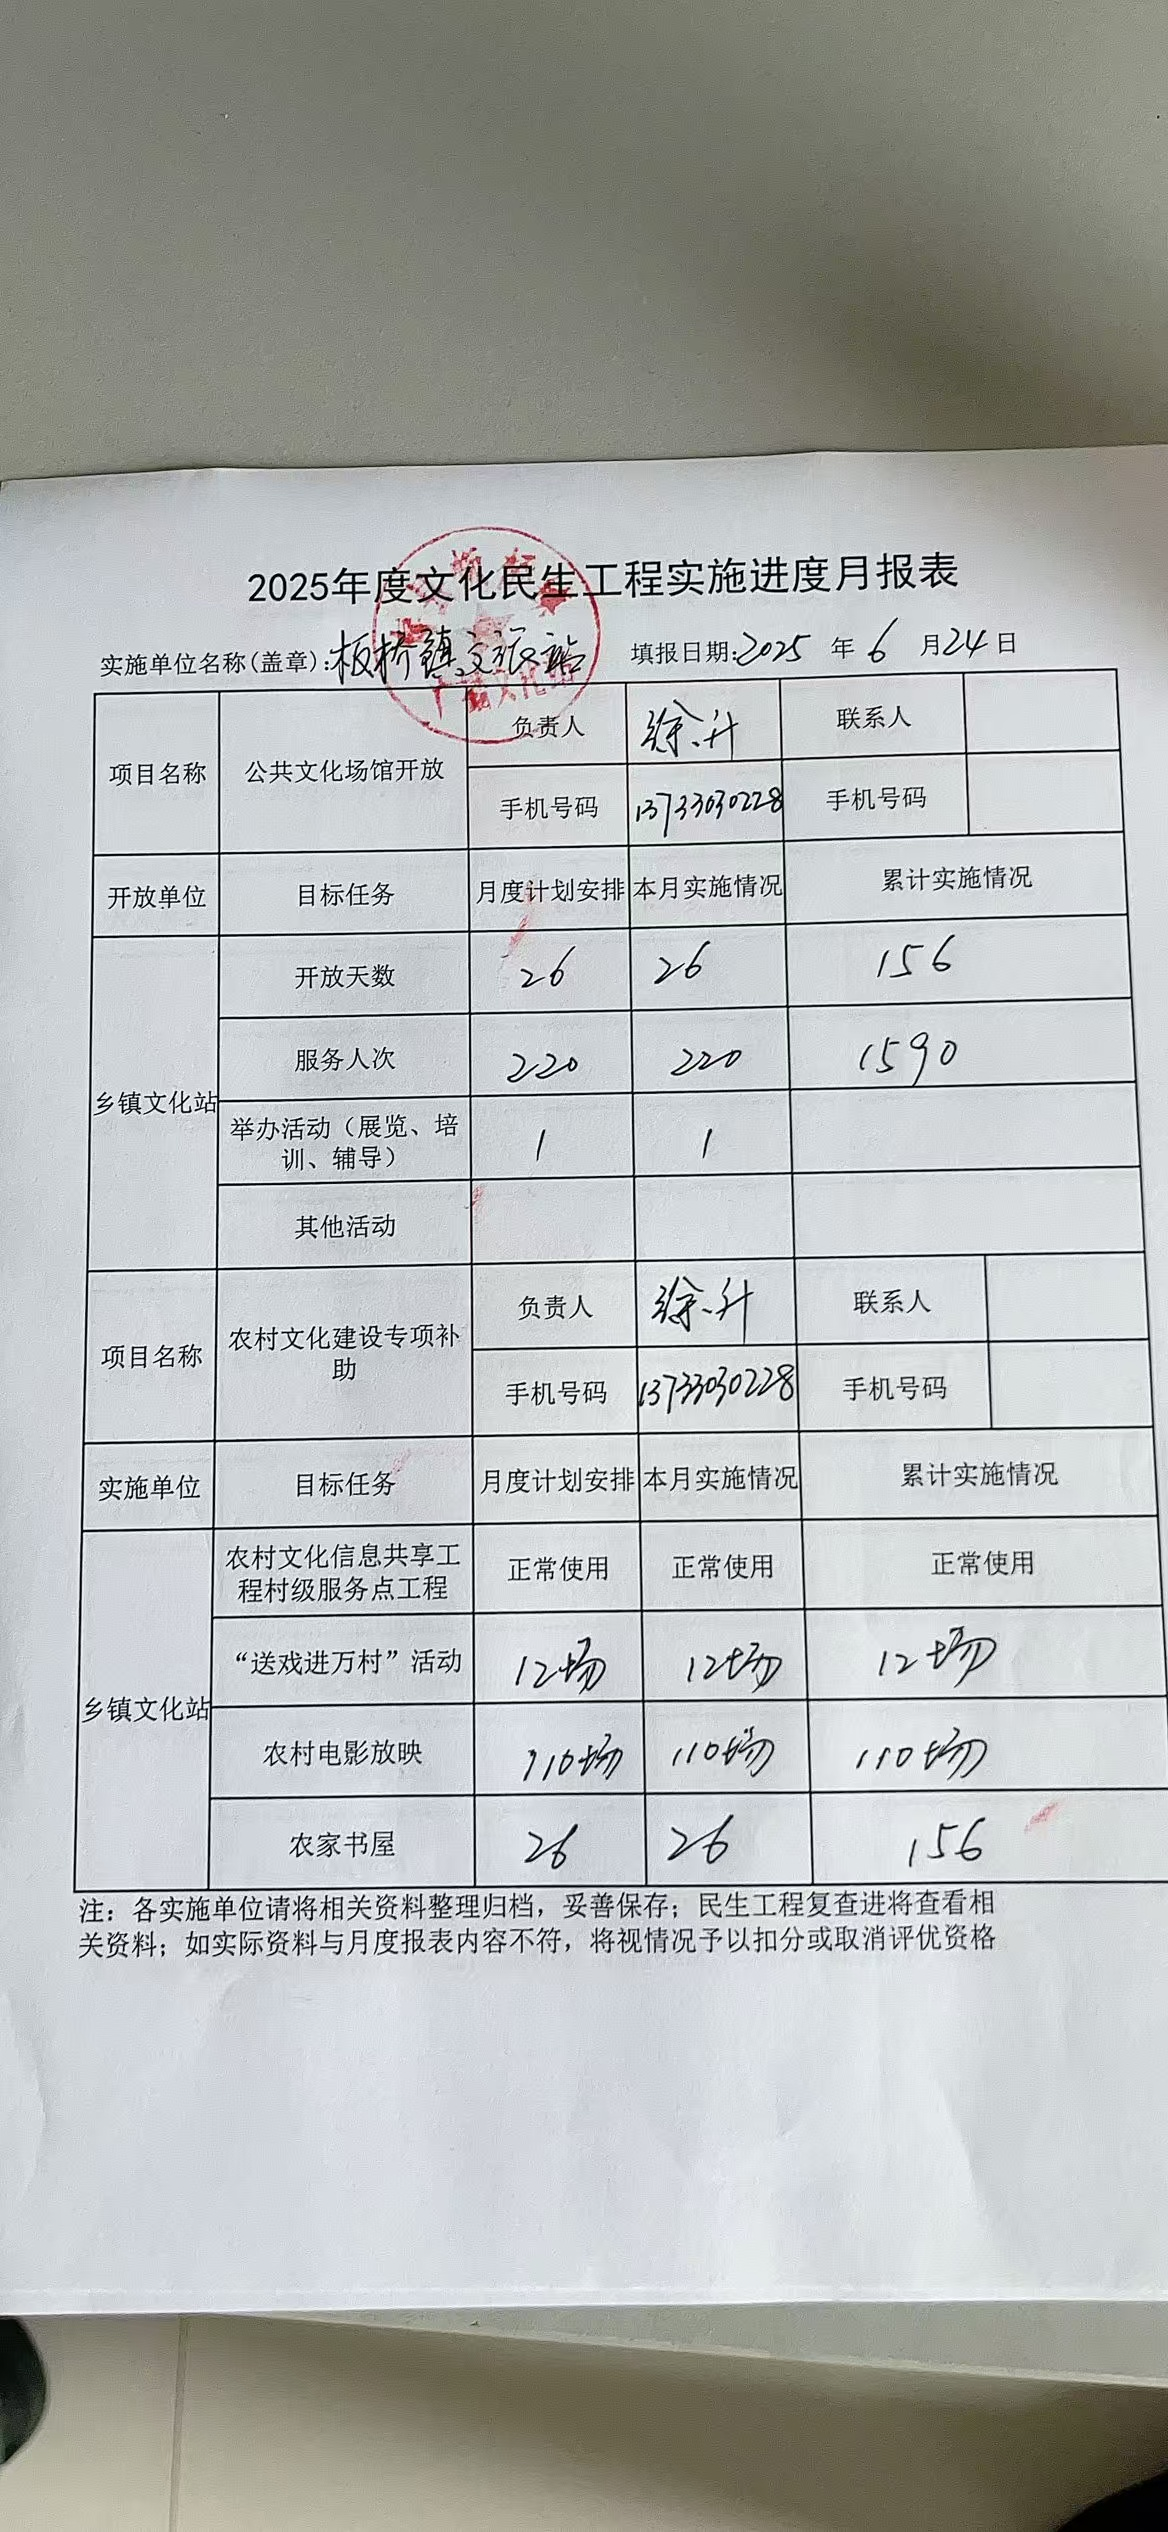 2025年度文化民生工程实施进度月报表
实施单位名称(盖章):板桥镇文旅站 填报日期:2025 年 6 月24日
项目名称 公共文化场馆开放 负责人 徐升 联系人
手机号码 13733030228 手机号码
开放单位 目标任务 月度计划安排 本月实施情况 累计实施情况
乡镇文化站 开放天数 26 26 156
服务人次 220 220 1590
举办活动（展览、培
训、辅导） 1 1
其他活动
项目名称 农村文化建设专项补
助 负责人 徐升 联系人
手机号码 13733030228 手机号码
实施单位 目标任务 月度计划安排 本月实施情况 累计实施情况
乡镇文化站 农村文化信息共享工
程村级服务点工程 正常使用 正常使用 正常使用
“送戏进万村”活动 12场 12场 12场
农村电影放映 110场 110场 110场
农家书屋 26 26 156
注：各实施单位请将相关资料整理归档，妥善保存；民生工程复查进将查看相
关资料；如实际资料与月度报表内容不符，将视情况予以扣分或取消评优资格